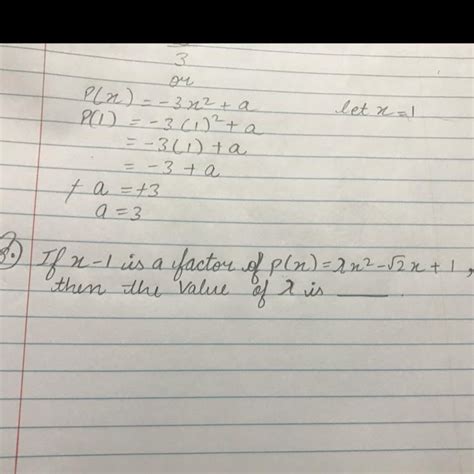 3
or
P(x) = -3x² + a let x = 1
P(1) = -3(1)² + a
= -3(1) + a
= -3 + a
+ a = +3
a = 3
8.) If x-1 is a factor of p(x) = λx² - √2x + 1,
then the value of λ is ____.